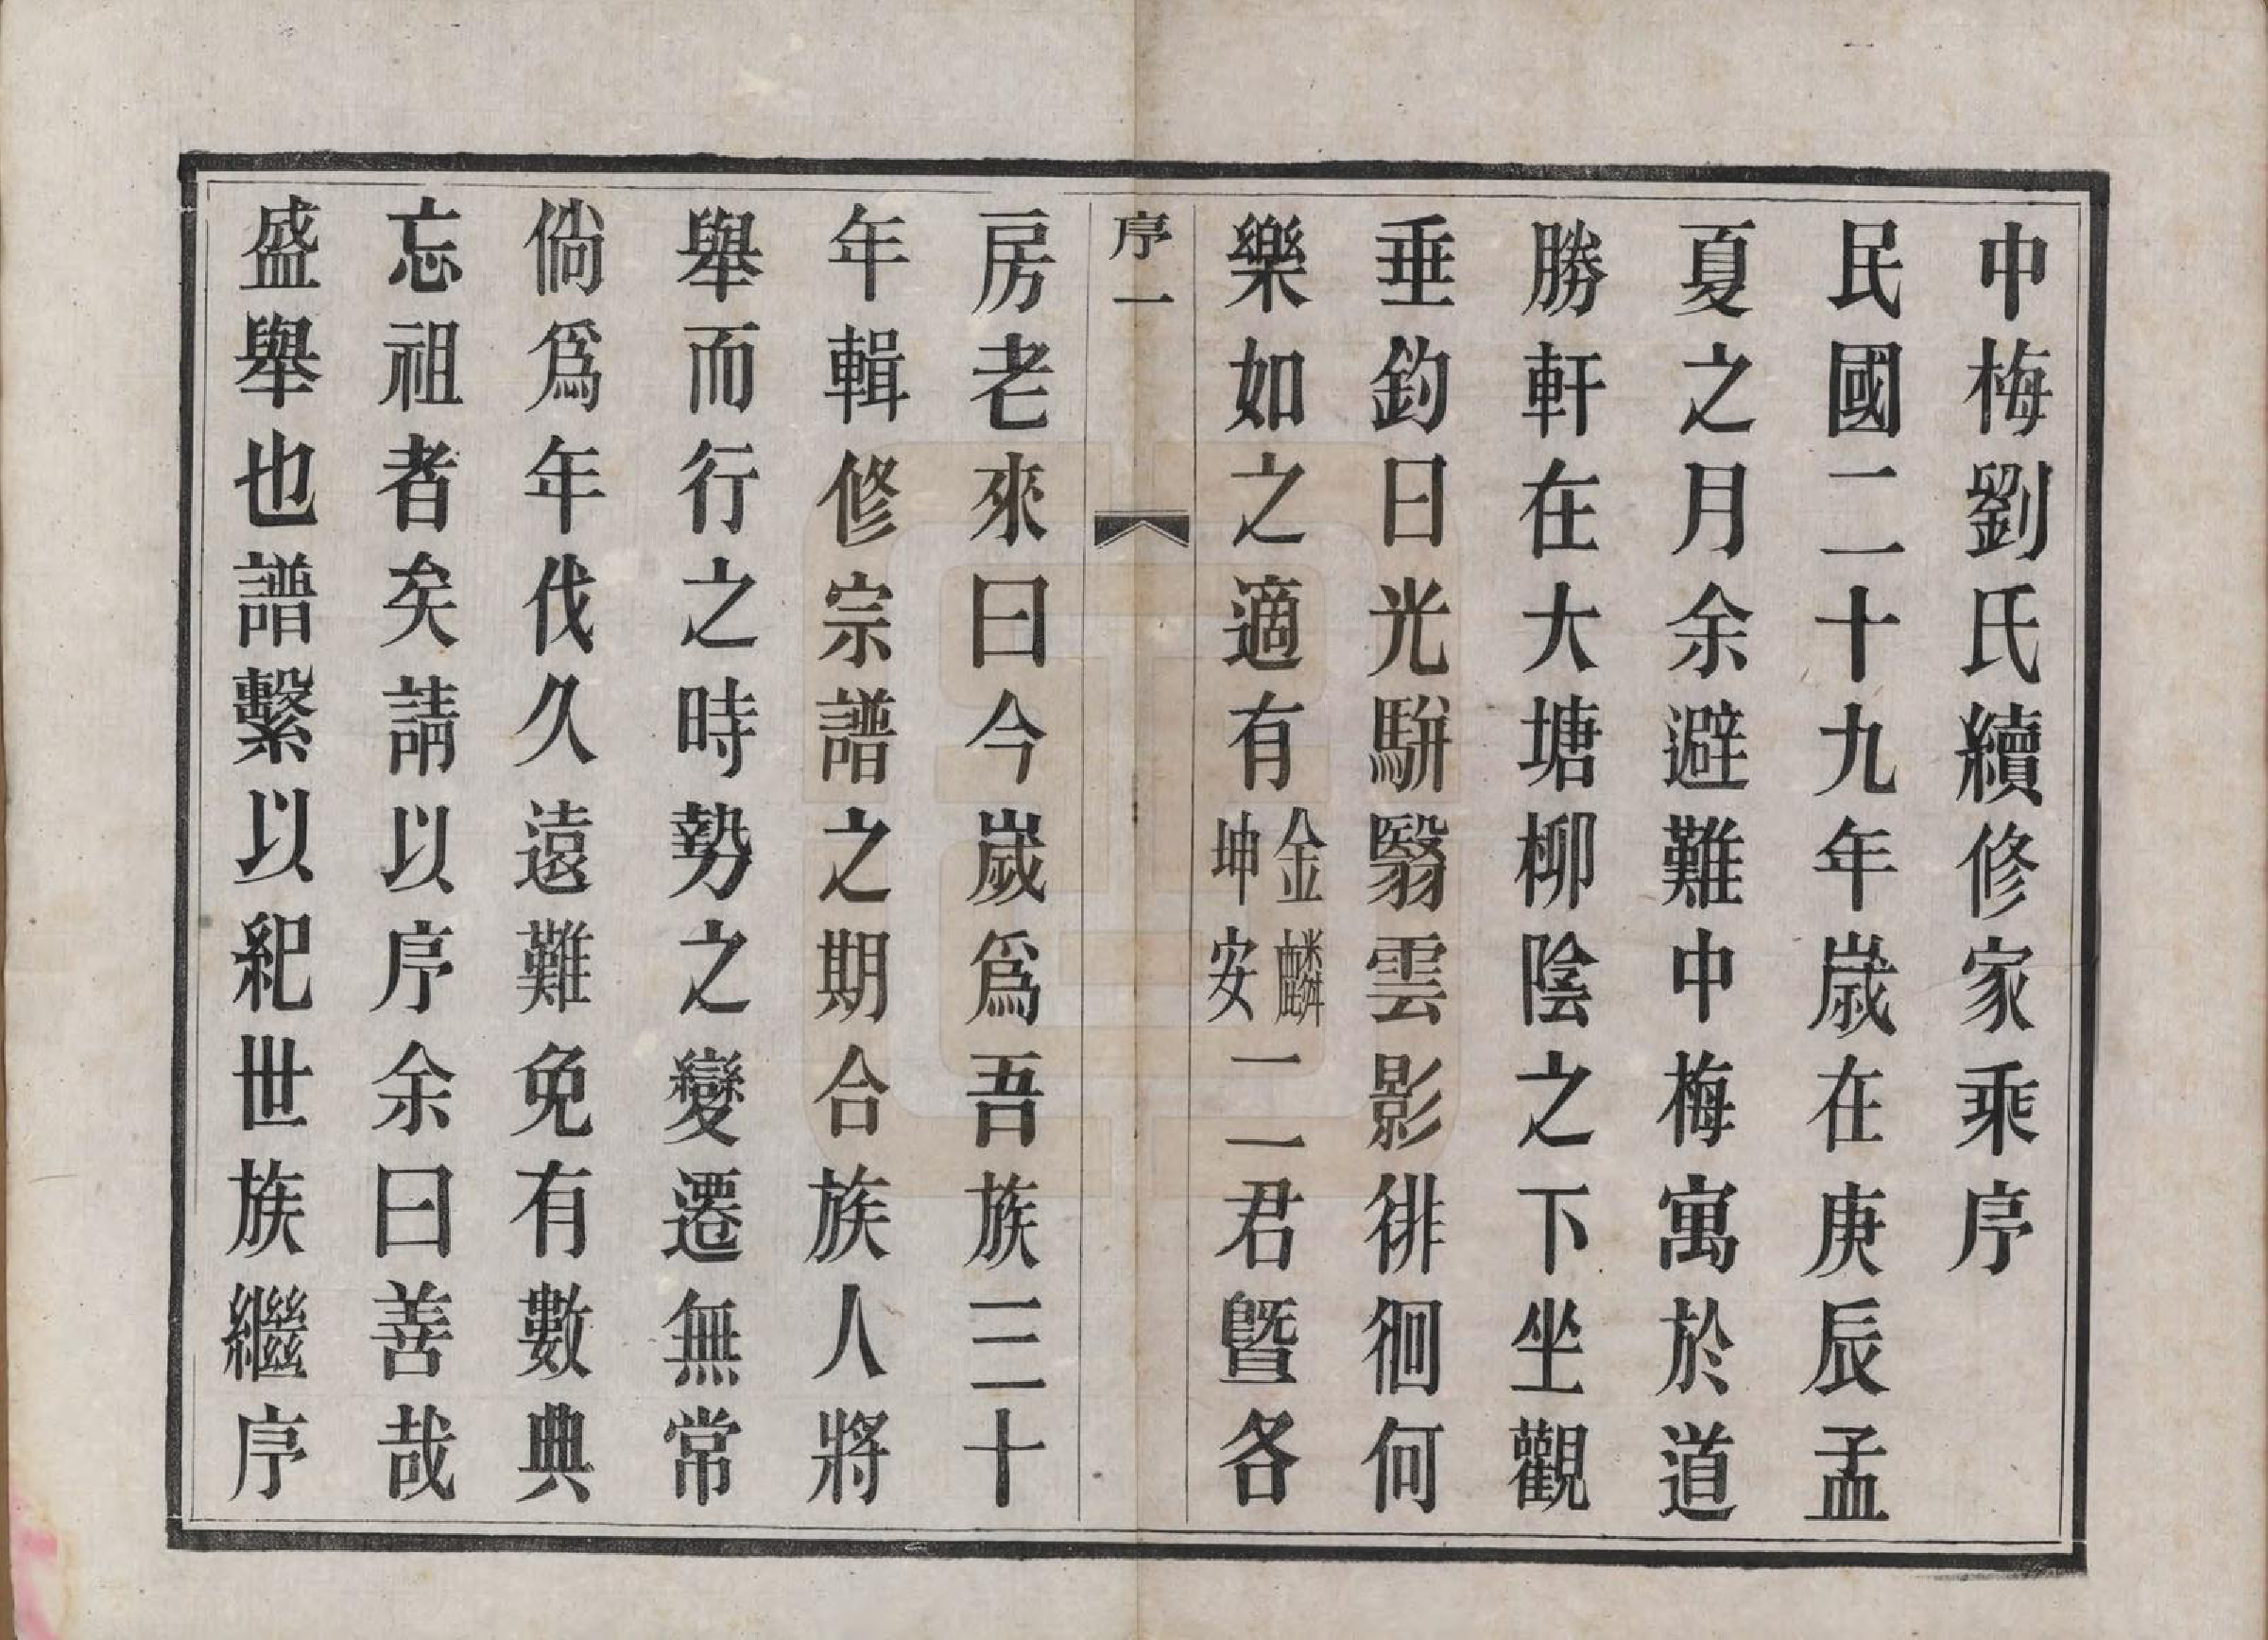 中梅劉氏續修家乘序
民國二十九年歲在庚辰孟
夏之月余避難中梅寓於道
勝軒在大塘柳陰之下坐觀
垂釣日光駢翳雲影徘徊何
樂如之適有金麟坤安二君暨各
序一
房老來曰今嵗爲吾族三十
年輯修宗譜之期合族人將
舉而行之時勢之變遷無常
倘爲年伐久遠難免有數典
忘祖者矣請以序余曰善哉
盛舉也譜繫以紀世族繼序